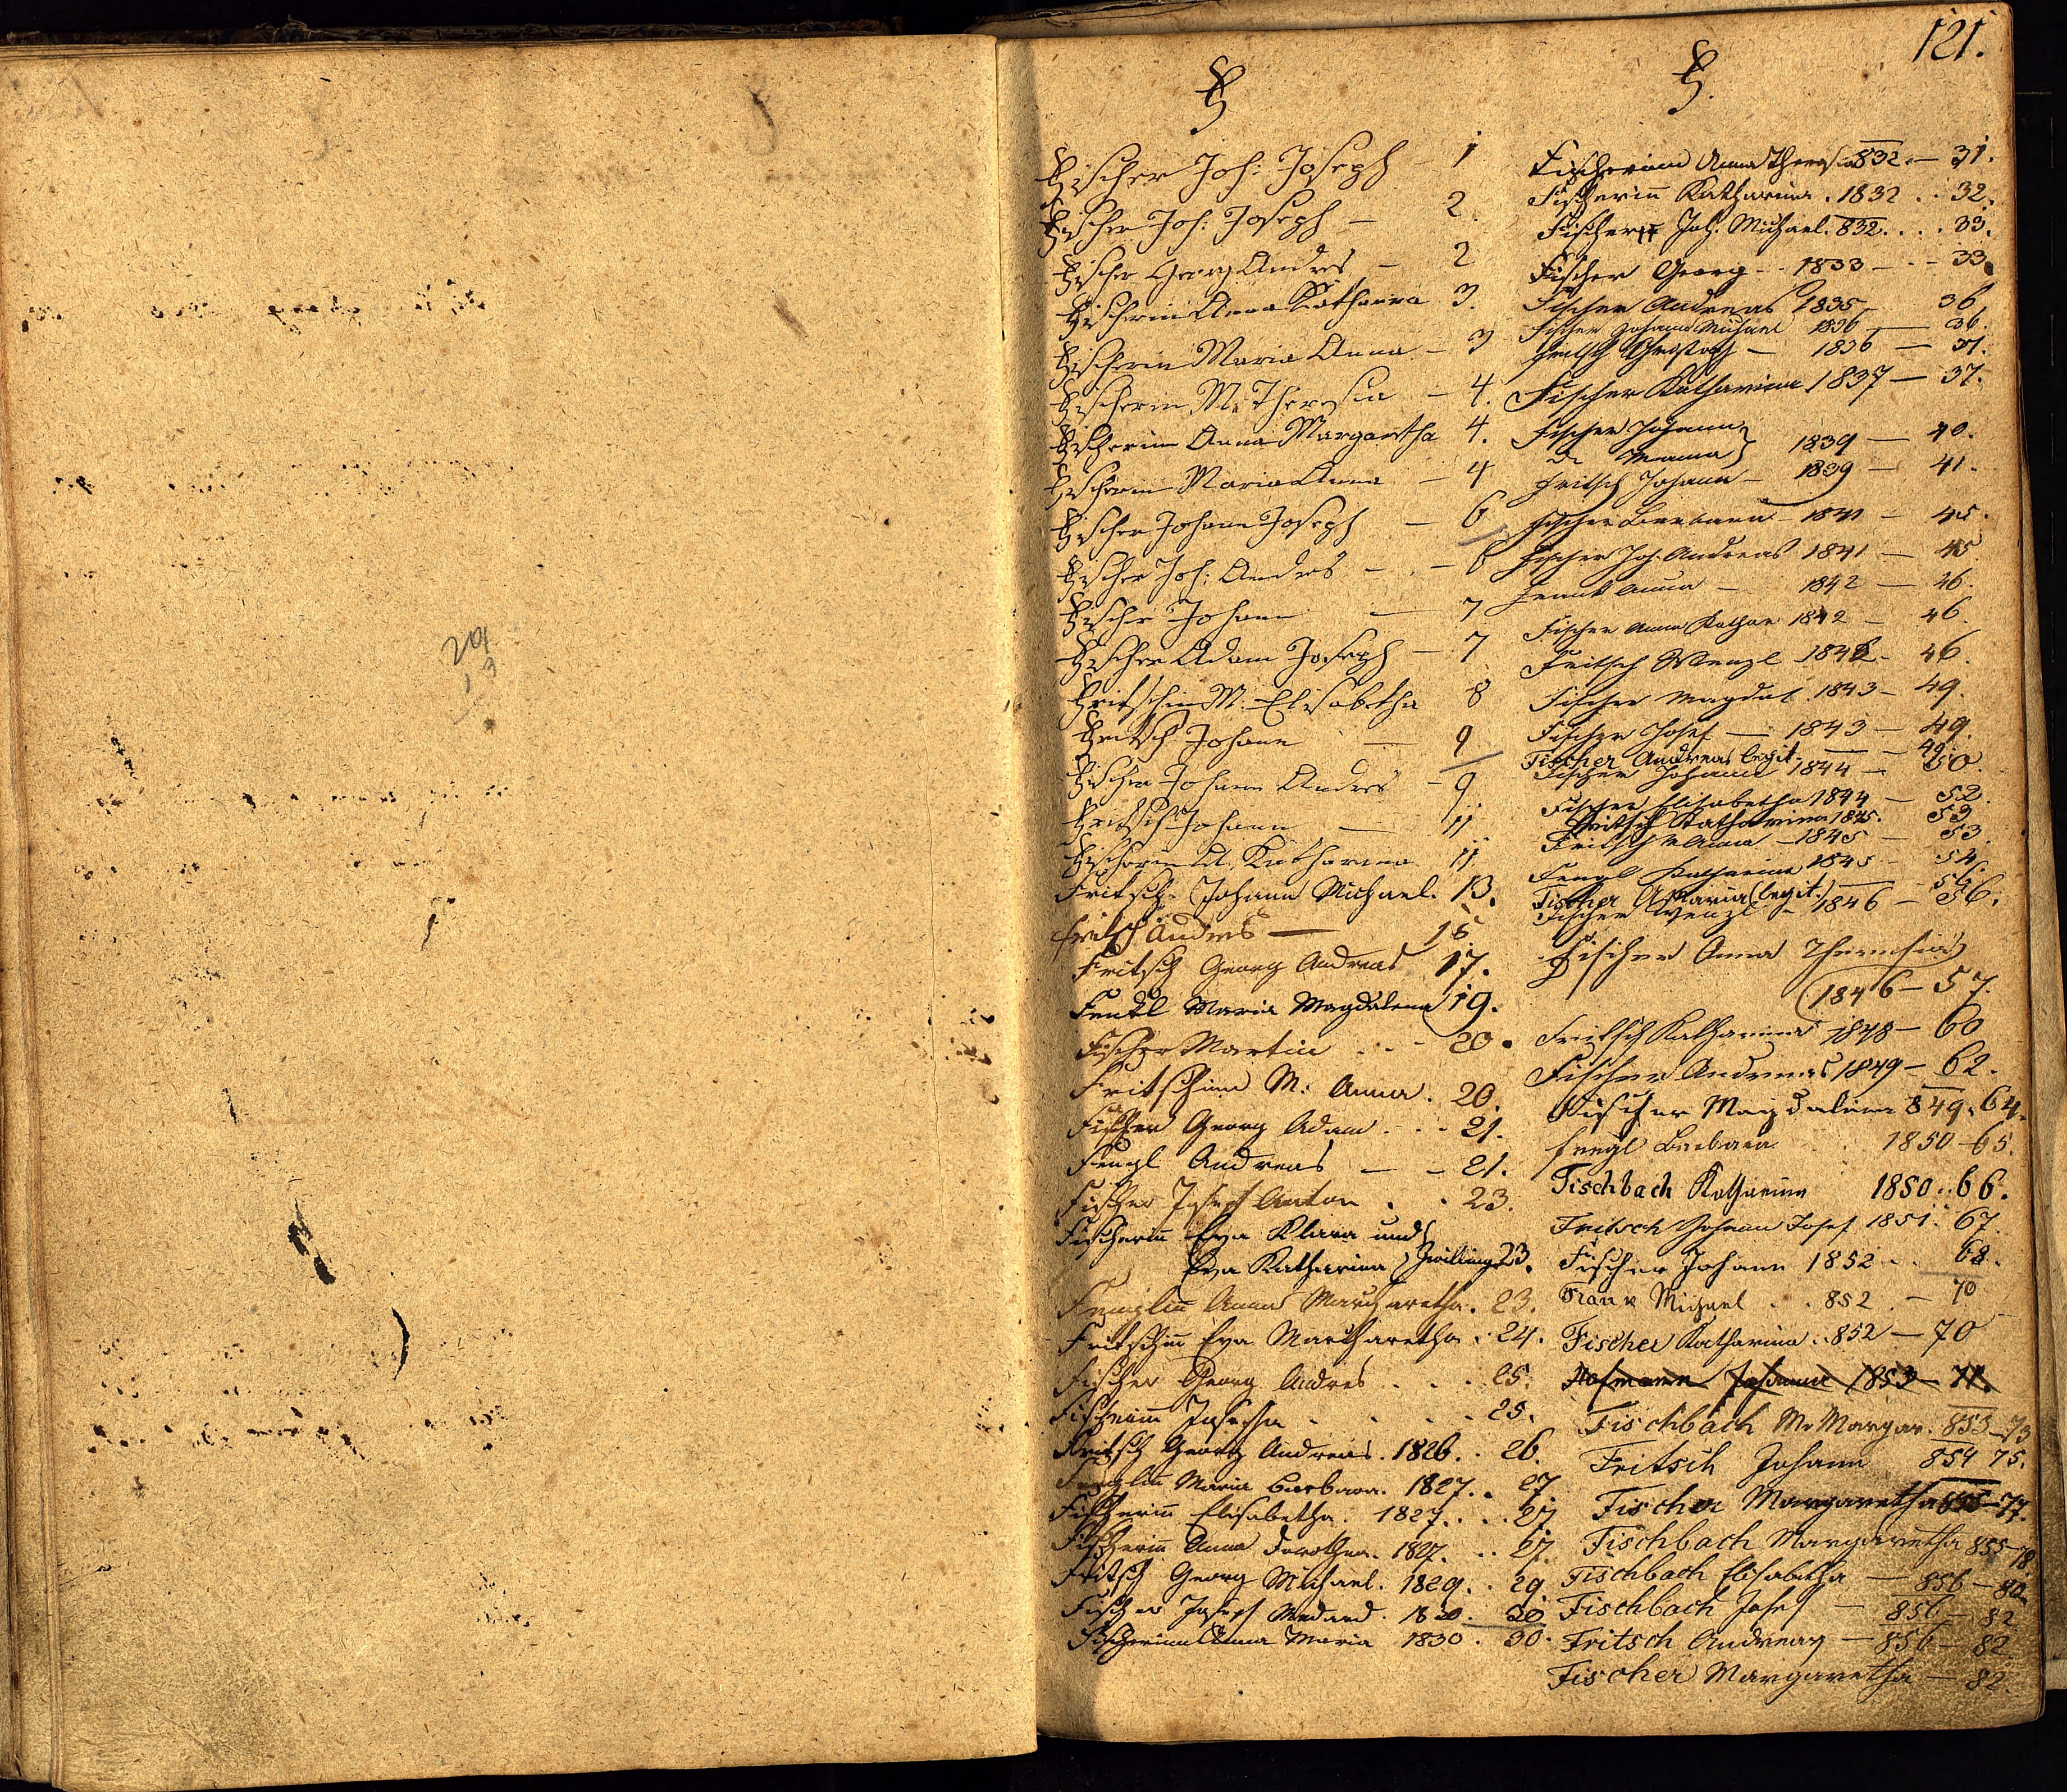 121.
F
Fischer Joh: Joseph - 1
Fischer Joh: Joseph - 2.
Fischer Georg Andres - 2
Fischerin Anna Katharina 3.
Fischerin Maria Anna - 3
Fischerin M. Theresia - 4.
Fischerin Anna Margaretha 4.
Fischerin Maria Anna - 4
Fischer Johann Joseph - 6
Fischer Joh: Andres - - 6
Fischer Johann - 7
Fischer Adam Joseph - 7
Fritschin M. Elisabetha 8
Fritsch Johann - 9
Fischer Johann Andres - 9
Fritsch Johann - 11
Fischerin A. Katharina 11
Fritsch Johann Michael. 13.
Fritsch Andres — 16
Fritsch Georg Andreas 17.
Maria Magdalena 19.
Fischer Martin . - - 20.
Fritschinn M: Anna. 20.
Fischer Georg Adam . - - 21.
Fengl Andreas — - 21.
Fischer Josef Anton . . 23.
Fischerin Eva Klara und
Eva Katharina Zwilling 23.
Fenglin Anna Margaretha. 23.
Fritschin Eva Margaretha. 24.
Fischer Georg Andres . . . 25.
Fischerinn Josepha . . . . 25.
Fritsch Georg Andreas. 1826. . 26.
Fenglin Maria Barbara. 1827. . 27.
Fischerin Elisabetha. 1827. . . . 27
Fischerin Anna Dorothea. 1827. . . 27.
Fritsch Georg Michael. 1829. . 29.
Fischer Josef Medard. 1830. 30
Fischerinn Anna Maria 1830. 30.
F.
Fischerinn Anna Theresia 832. — 31.
Fischerin Katharina. 1832 . . 32.
Fischer Joh. Michael. 832. . . . 33.
Fischer Georg - - 1833 — - - 33.
Fischer Andreas 1835 36
Fischer Johann Michael 1836 — 36.
Fritsch Christoph — 1836 — 37.
Fischer Katharina 1837 — 37.
Fischer Johann
1839 — 40.
Fritsch Johann — 1839 — 41.
Fischer Barbara - 1841 — 45.
Fischer Joh. Andreas 1841 — 45
Anna — 1842 — 46.
Fischer Anna Kathar 1842 — 46.
Fritsch Wenzl 1842 - 46.
Fischer Magdal. 1843 - 49.
Fischer Josef — 1843 — 49.
Fischer Andreas legit. — 49.
Fischer Johann 1844 — 50.
Fischer Elisabetha 1844 — 52.
Fritsch Katharina 1845. 53
Fritsch Anna - 1845 — 53.
Fengl Katharina 1845 - 54.
Fischer Maria (legit.) — 54.
Fischer Wenzl - 1846 — 56.
Fischer Anna Theresia
1846 — 57.
Fritsch Katharina 1848 — 60
Fischer Andreas 1849 — 62.
Fischer Magdalena 849. 64.
Fengl Barbara 1850 - 65.
Fischbach Katharina 1850. . 66.
Fritsch Johann Josef 1851. 67.
Fischer Johann 1852 . . 68.
Frank Michael . . 852. — 70
Fischer Katharina. . 852 — 70
Hofmann Johanna 1853 — 71.
Fischbach M. Margar. 853 - 73
Fritsch Johann 854 75.
Fischer Margaretha 855 - 77.
Fischbach Margaretha 855 - 78
Fischbach Elisabetha — 856 — 80
Fischbach Josef — 856 — 82
Fritsch Andreas — 856 — 82
Fischer Margaretha — 82.